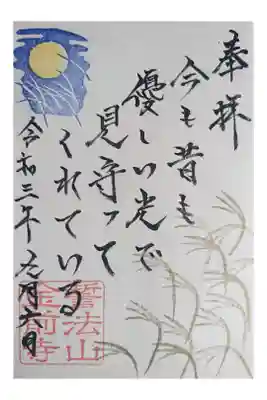 奉拝
今も昔も
優しい光で
見守って
くれている
令和三年九月六日
誓法山
金前寺